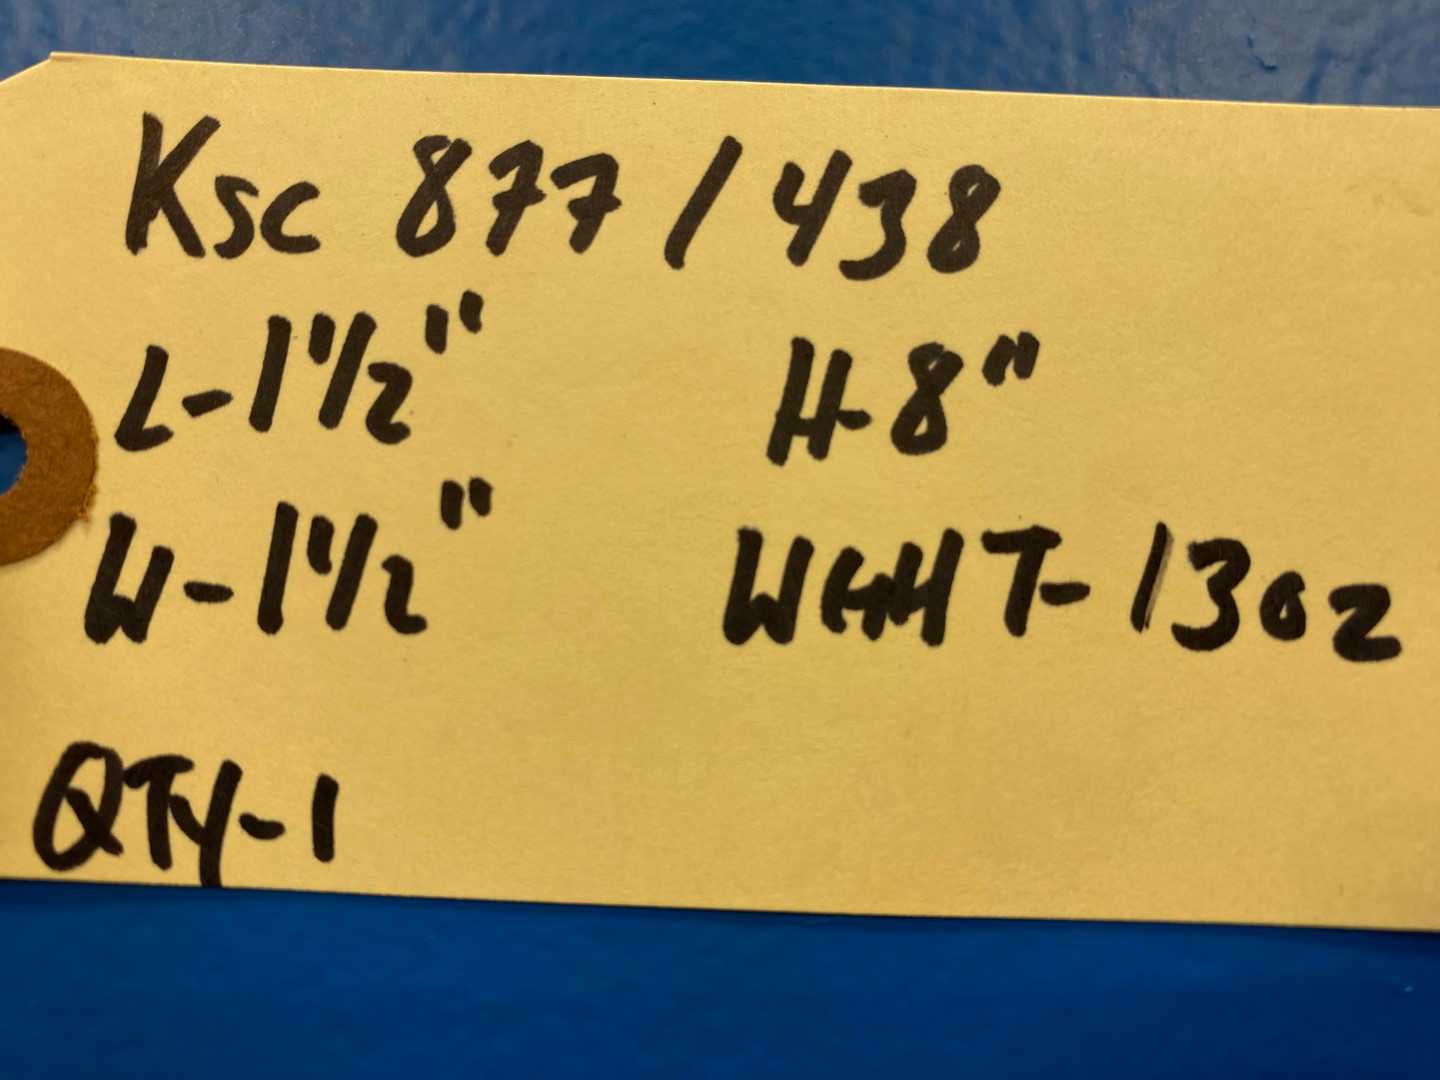 Ksc 877 / 438
L-1 1/2" H-8"
W-1 1/2" WGHT-13oz
QTY-1